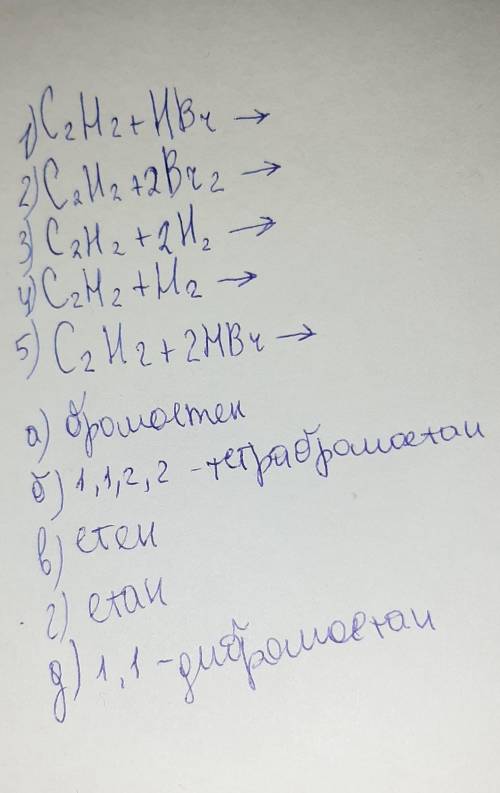 1) C₂H₂ + HBr →
2) C₂H₂ + 2Br₂ →
3) C₂H₂ + 2H₂ →
4) C₂H₂ + H₂ →
5) C₂H₂ + 2HBr →
а) бромоетен
б) 1,1,2,2 - тетрабромоетан
в) етен
г) етан
д) 1,1 - дибромоетан